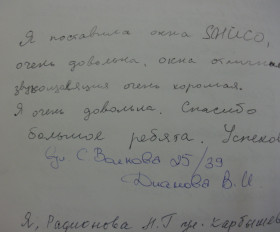 Я поставила окна SCHÜCO,
очень довольна. окна отличные
звукоизоляция очень хорошая.
Я очень довольна. Спасибо
большое ребята. Успехов
ул С. Волкова 25/39
Дианова В.И
Я, Радионова Н.Г ул. Карбышев